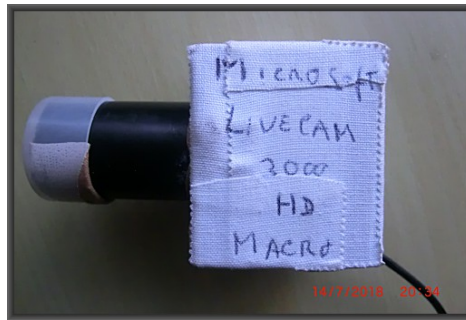 Microsoft
LIVECAM
3000
HD
MACRO
14/7/2018 20:34